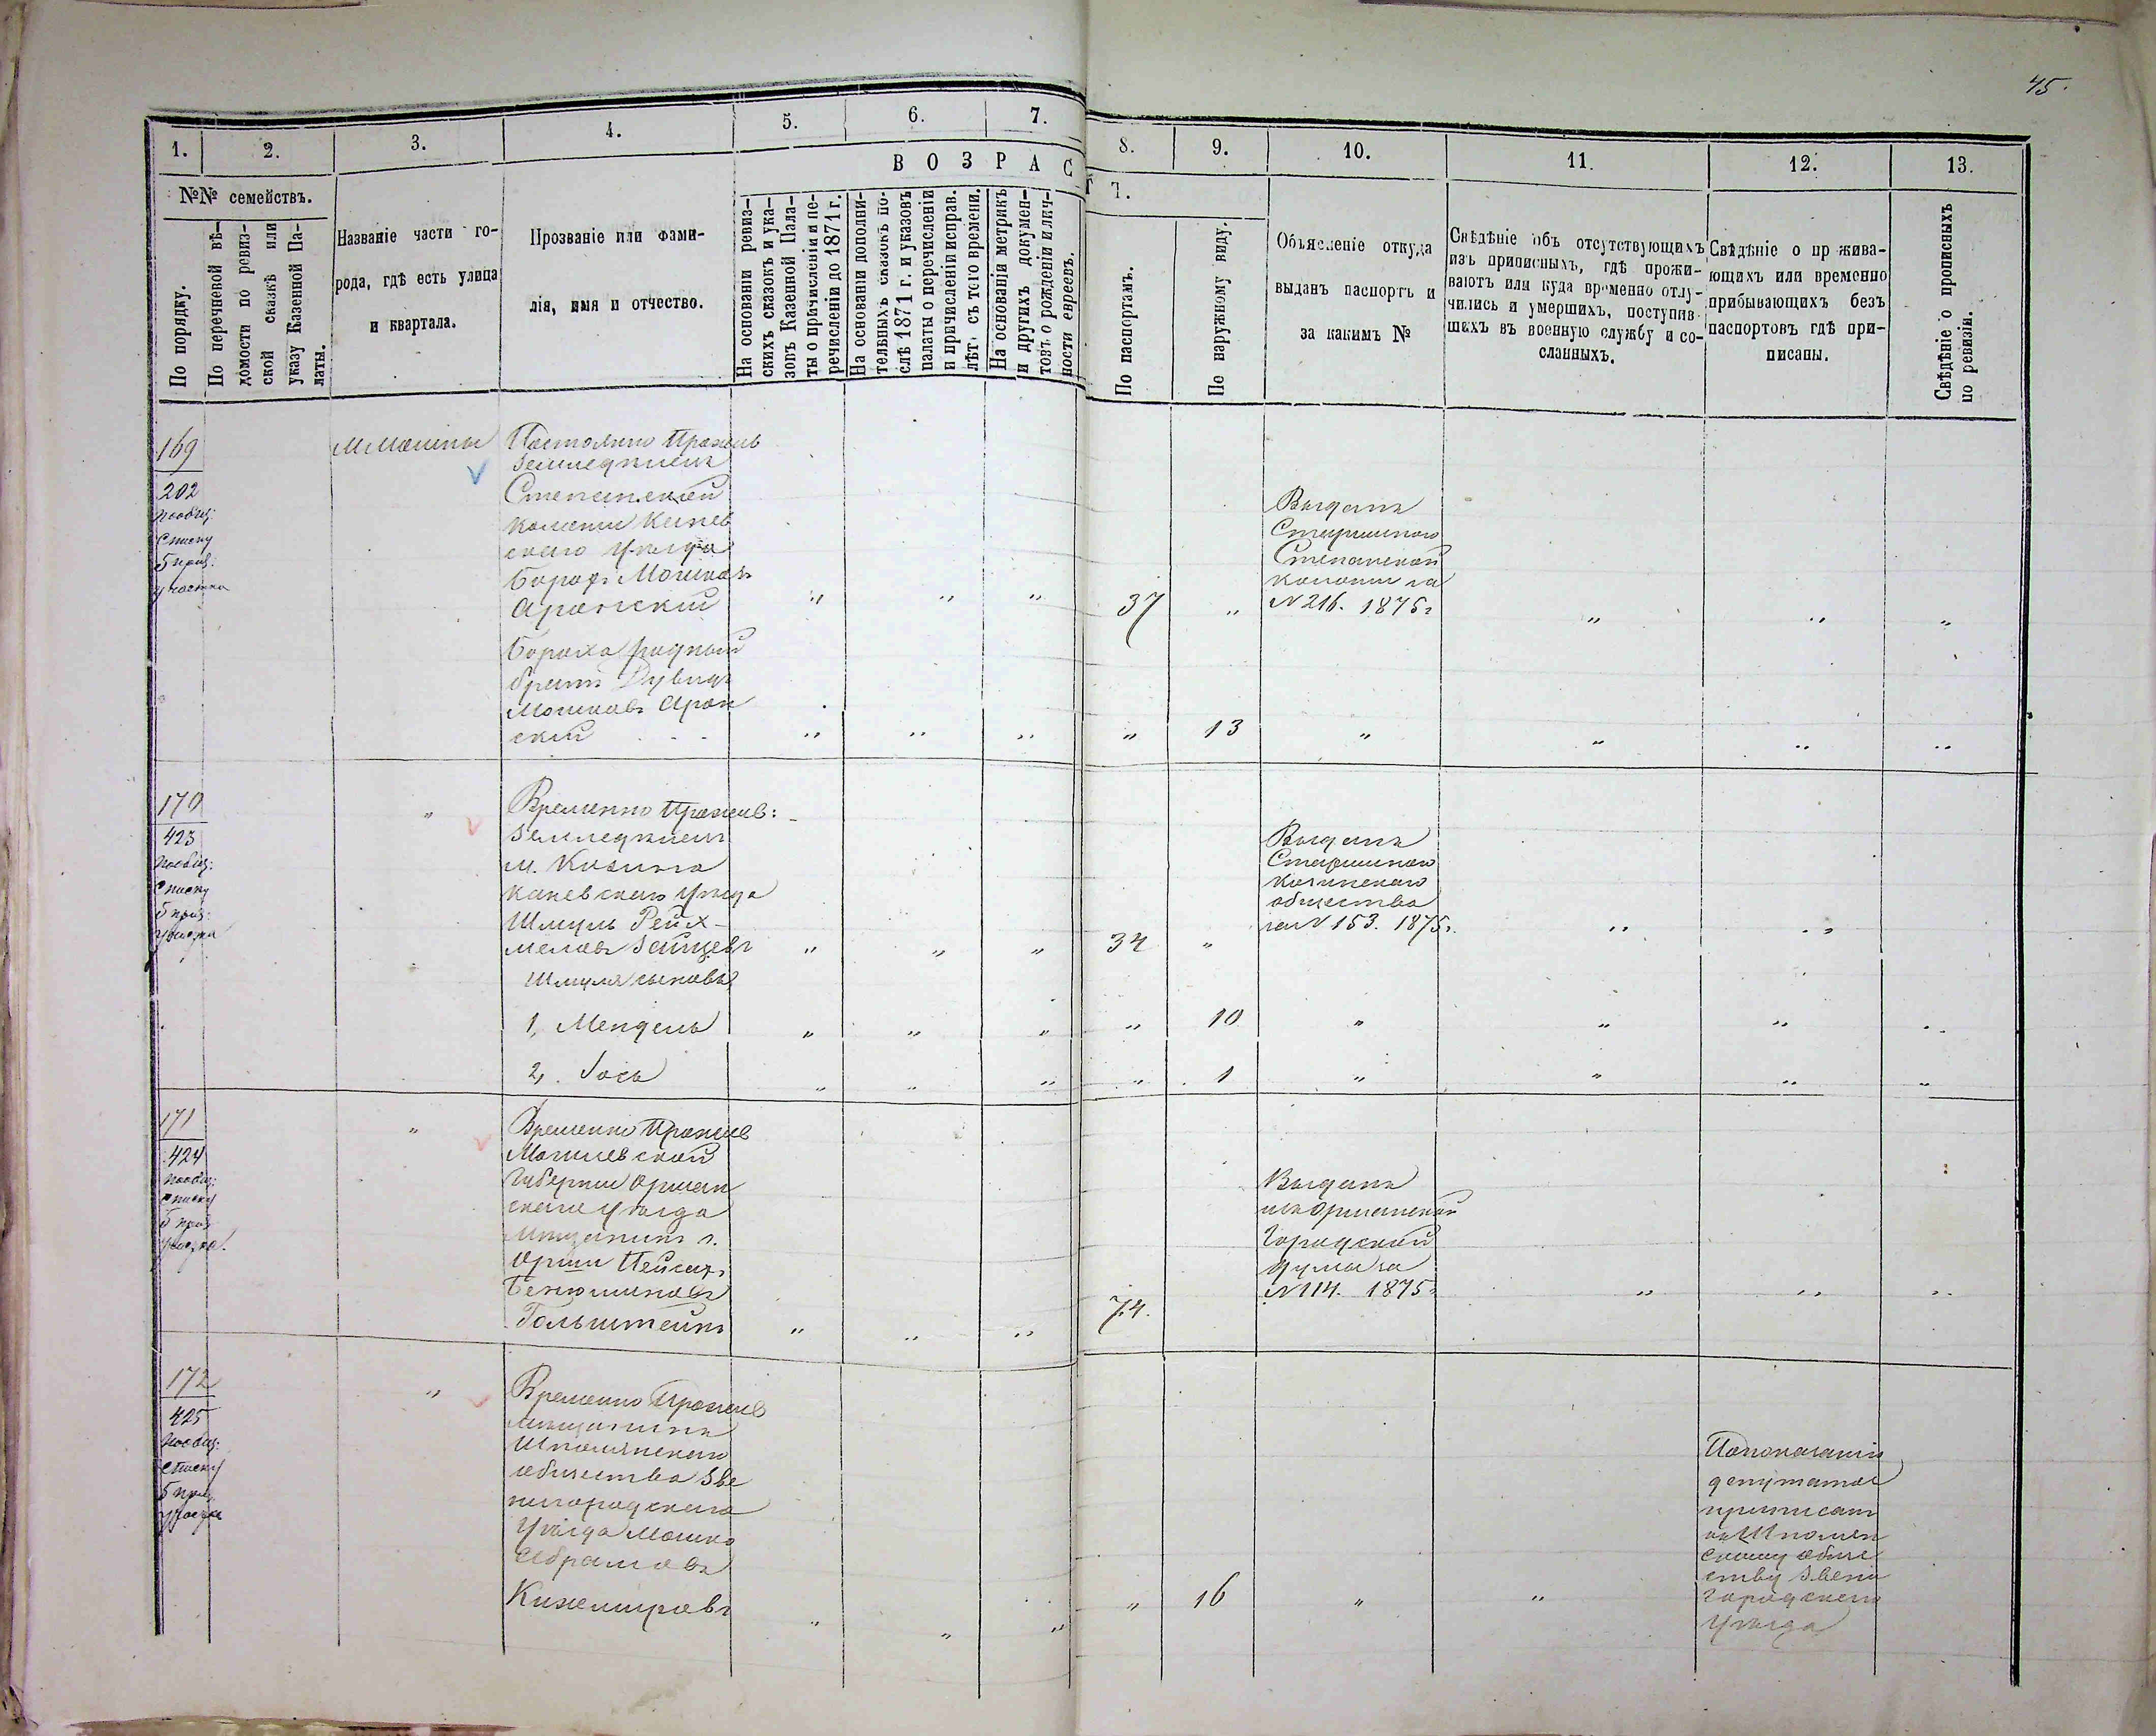 45.
1.
2.
3.
4.
5.
6.
7.
8.
9.
10.
11
12.
13.
ВОЗРАС
Т.
№№ семействъ.
По порядку.
По перечневой вѣ-
домости по ревиз-
ской сказкѣ или
указу Казенной Па-
латы.
Названіе части го-
рода, гдѣ есть улица
и квартала.
Прозваніе или фами-
лія, имя и отчество.
На основаніи ревиз-
скихъ сказокъ и ука-
зовъ Казенной Пала-
ты о причисленіи и пе-
речисленіи до 1871 г.
На основаніи дополни-
тельныхъ сказокъ по-
слѣ 1871 г. и указовъ
палаты о перечисленіи
и причисленіи исправ.
лѣтъ съ того времени.
На основаніи метрикъ
и другихъ докумен-
товъ о рожденіи и лич-
ности евреевъ.
По паспортамъ.
По наружному виду.
Объясненіе откуда
выданъ паспортъ и
за какимъ №
Свѣдѣніе объ отсутствующихъ
изъ приписныхъ, гдѣ прожи-
ваютъ или куда временно отлу-
чились и умершихъ, поступив-
шихъ въ военную службу и со-
сланныхъ.
Свѣдѣніе о пр жива-
ющихъ или временно
прибывающихъ безъ
паспортовъ гдѣ при-
писаны.
Свѣдѣніе о прописныхъ
по ревизіи.
169
202
пообщ:
списку
5 приз:
участка
М. Мошны
Постоянно Прожив
Земледѣлецъ
Степанской
колоніи Канев
скаго уѣзда
Борохъ Мошковъ
Аронскій
" " "
37
"
Выданъ
Старшиною
Степанской
колоніи за
№ 216. 1875г
" " "
Бороха родный
братъ Дувидъ
Мошковъ Арон
скій
" " " "
13
" " " "
170
423
пообщ:
списку
5 приз:
участка
"
Временно Прожив:
Земледѣлецъ
м. Козина
Каневскаго уѣзда
Шмуль Рейх-
меловъ Зайцевъ
" " "
34
"
Выданъ
Старшиною
Козинскаго
общества
за № 153. 1875г.
" "
Шмуля сыновья
1, Мендель
" " " "
10
" " " "
2, Іось
" " " "
1
" " " "
171
424
пообщ:
списку
5 приз
участка.
"
Временно Прожив
Могилевской
Губерніи Оршан
скаго уѣзда
мѣщанинъ г.
Орши Пейсахъ
Бенюминовъ
Гольштейнъ
" " "
74.
Выданъ
изъ Оршанской
Городской
Думы за
№ 114. 1875г
" " "
172
425
пообщ:
списку
5 приз
участка
"
Временно Прожив
мѣщанинъ
Шполянскаго
общества Зве
нигородскаго
Уѣзда Мошко
Абрамовъ
Кижемировъ
" " " "
16
" "
По показанію
депутатов
приписанъ
къ Шполян
скому обще
ству Звени
городскаго
уѣзда